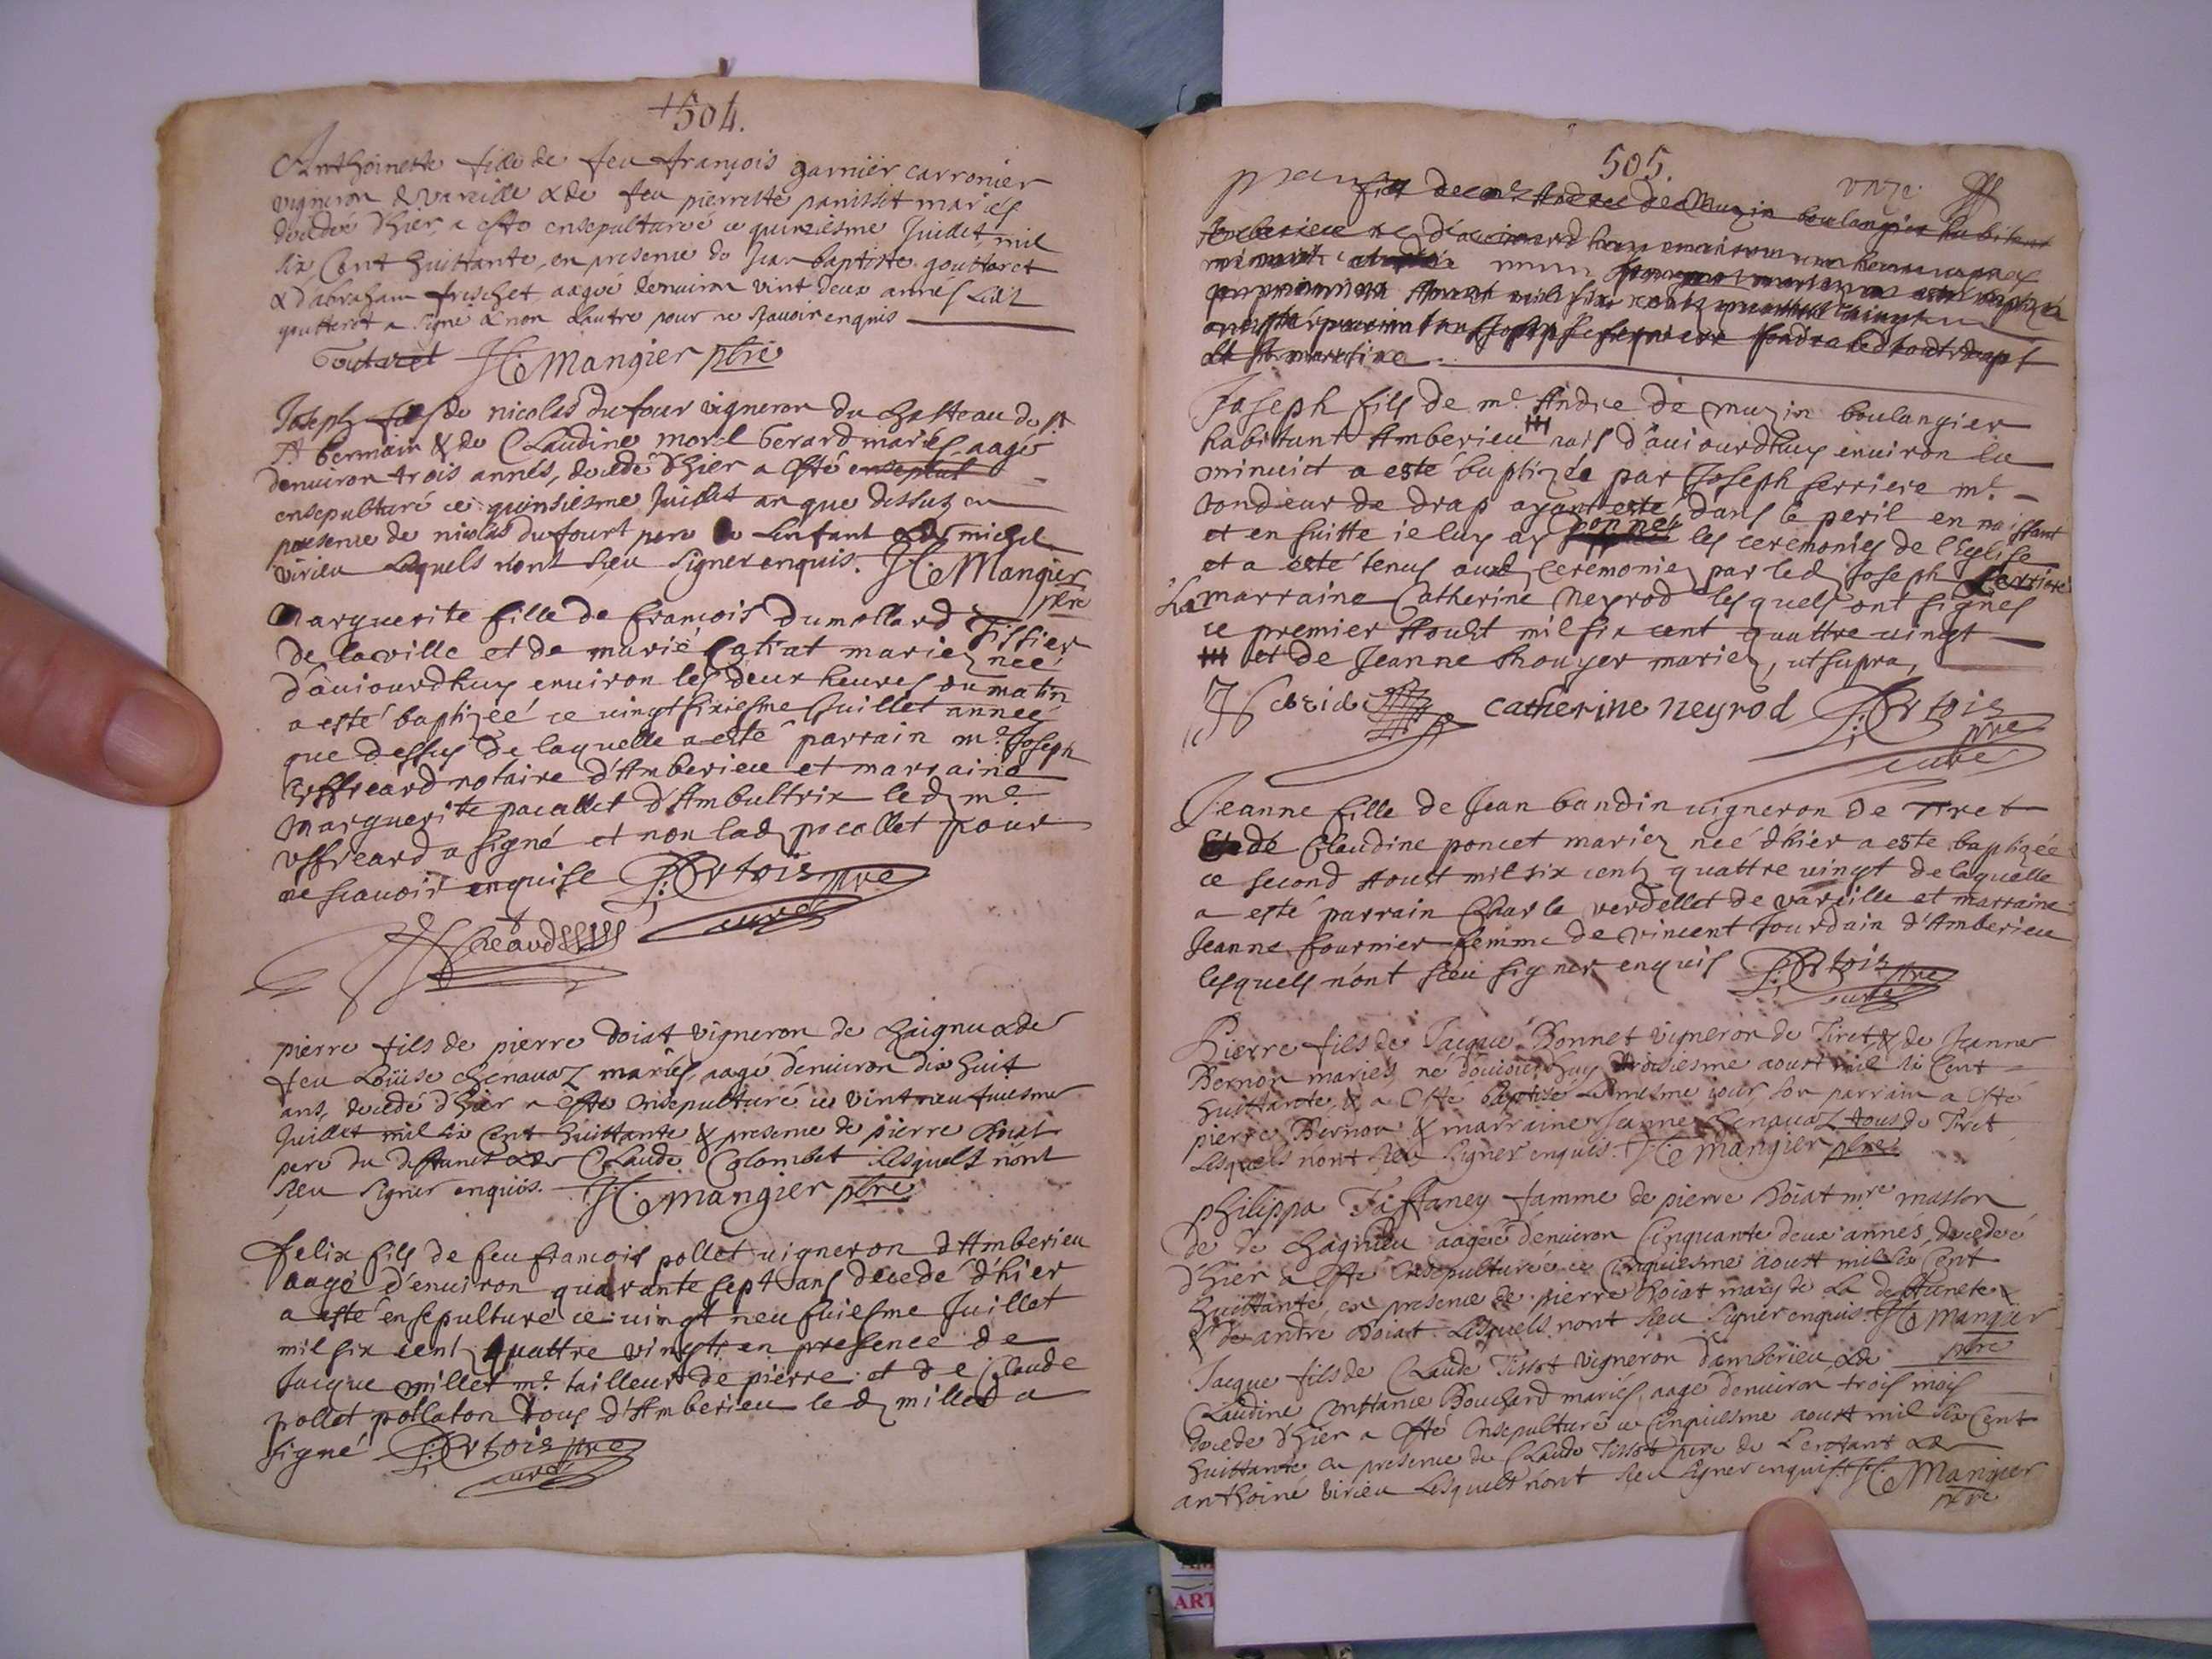 +504.
Anthoinette fille de feu françois garnier carronier
vigneron de vareille & de feu pierrette panissit mariés
decedee d'hier, a esté ensepulturée ce quinziesme Juillet mil
six Cent huittante, en presence de Jean baptiste gouttaret
& d'abraham frischet, aagée denuiron vint deux annes Led
goutteret a signé & non Lautre pour ne sçauoir enquis
Goutaret H. Mangier pbre
Joseph fils de nicolas dufour vigneron du chasteau de st
St Germain & de Claudine morel Gerard mariés, aagé
denuiron trois annés, decedé d'hier a esté ensepult
ensepulturé ce quinsiesme Juillet an que dessus en
presence de nicolas dufourt pere de Lenfant & de michel
virieu Lesquels n'ont sceu signer enquis. H. Mangier
pbre
Marguerite fille de francois Dumollard Tissier
de la ville et de marie Catiat mariez née
d'auiourdhuy enuiron les deux heures du matin
a esté baptizéé ce vingt sixiesme Juillet année
que dessus de laquelle a esté parrain me Joseph
notaire d'Amberieu et marraine
Marguerite pacallet d'Ambultrix led me
a signé et non lad pacallet pour
ne scauoir enquise Ortois pre
curé
pierre fils de pierre Boiat vigneron de chaignu & de
feu Loüise chenauaz mariés, aagé denuiron dix huit
ans, decedé d'hier a esté ensepulturé ce vint neufuiesme
Juillet mil six Cent huittante & presence de pierre Boiat
pere du deffunct & de Claude Colombet Lesquels nont
sceu signer enquis. H. Mangier pbre
Felix fils de feu francois pollet uigneron d'Amberieu
aagé d'enuiron quarante sept ans decedé d'hier
a esté ensepulturé ce uingt neufuiesme Juillet
mil six cent quattre vingts en presence de
Jacque millet me tailleur de pierre et de Claude
pollet pollaton tous d'Amberieu led millet a
signé Ortois pre
curé
505.
fils de me Andre de Muzin boulangier habitant
Joseph fils de me Andre de muzin boulangier
habittant Amberieu nais d'auiourdhuy enuiron la
minuict a esté baptizée par Joseph ferriere me
tondeur de drap ayant esté dans le peril en naissant
et en suitte ie luy ay donnez les ceremonies de l'Eglise
et a esté tenus aux ceremonies par led Joseph ferriere
La marraine Catherine Neyrod lesquels ont signes
ce premier Aoust mil six cent quattre vingt
et de Jeanne Rouyer mariez, ut supra,
catherine neyrod Ortois
pre
curé
Jeanne fille de Jean bandin uigneron de Tiret
et de Claudine poncet mariez née d'hier a esté baptizée
ce second Aoust mil six cent quattre uingt de laquelle
a esté parrain Charle verdellet de vareille et marraine
Jeanne fournier femme de vincent Jourdain d'Amberieu
lesquels n'ont sceu signer enquis Ortois pre
curé
Pierre fils de Jacque Bonnet vigneron de Tiret & de Jeanne
Bernon mariés, né d'auiourdhuy troisiesme aoust mil six Cent
huittante, & a esté baptisé Le mesme iour, son parrain a esté
pierre Bernon & marraine Jeanne chenauaz tous de Tiret
Lesquels nont sceu signer enquis. H. Mangier pbre
philippa Taffaney famme de pierre Boiat mre masson
de de chagnieu aagée denuiron Cinquante deux annes, decedeé
d'hier a esté ensepulturée ce Cinquiesme aoust mil six Cent
huittante, en presence de pierre Boiat mary de La deffuncte &
& de andre Boiat. Lesquels nont sceu signer enquis. H. Mangier
pbre
Jacque fils de Claude Tissot vigneron d'amberieu & de
Claudine Constance Bouchard mariés, aagé denuiron trois mois
decedé d'hier a esté ensepulturé ce Cinquiesme aoust mil six Cent
huittante en presence de Claude Tissot pere de L'enfant & de
anthoine virieu Lesquels nont sceu signer enquis. H. Mangier
pbre
ART